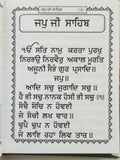 ਜਪੁ ਜੀ ਸਾਹਿਬ
ੴ ਸਤਿ ਨਾਮੁ ਕਰਤਾ ਪੁਰਖੁ
ਨਿਰਭਉ ਨਿਰਵੈਰੁ ਅਕਾਲ ਮੂਰਤਿ
ਅਜੂਨੀ ਸੈਭੰ ਗੁਰ ਪ੍ਰਸਾਦਿ॥
॥ ਜਪੁ ॥
ਆਦਿ ਸਚੁ ਜੁਗਾਦਿ ਸਚੁ ॥
ਹੈ ਭੀ ਸਚੁ ਨਾਨਕ ਹੋਸੀ ਭੀ ਸਚੁ ॥੧॥
ਸੋਚੈ ਸੋਚਿ ਨ ਹੋਵਈ
ਜੇ ਸੋਚੀ ਲਖ ਵਾਰ ॥
ਚੁਪੈ ਚੁਪ ਨ ਹੋਵਈ
ਜੇ ਲਾਇ ਰਹਾ ਲਿਵ ਤਾਰ ॥